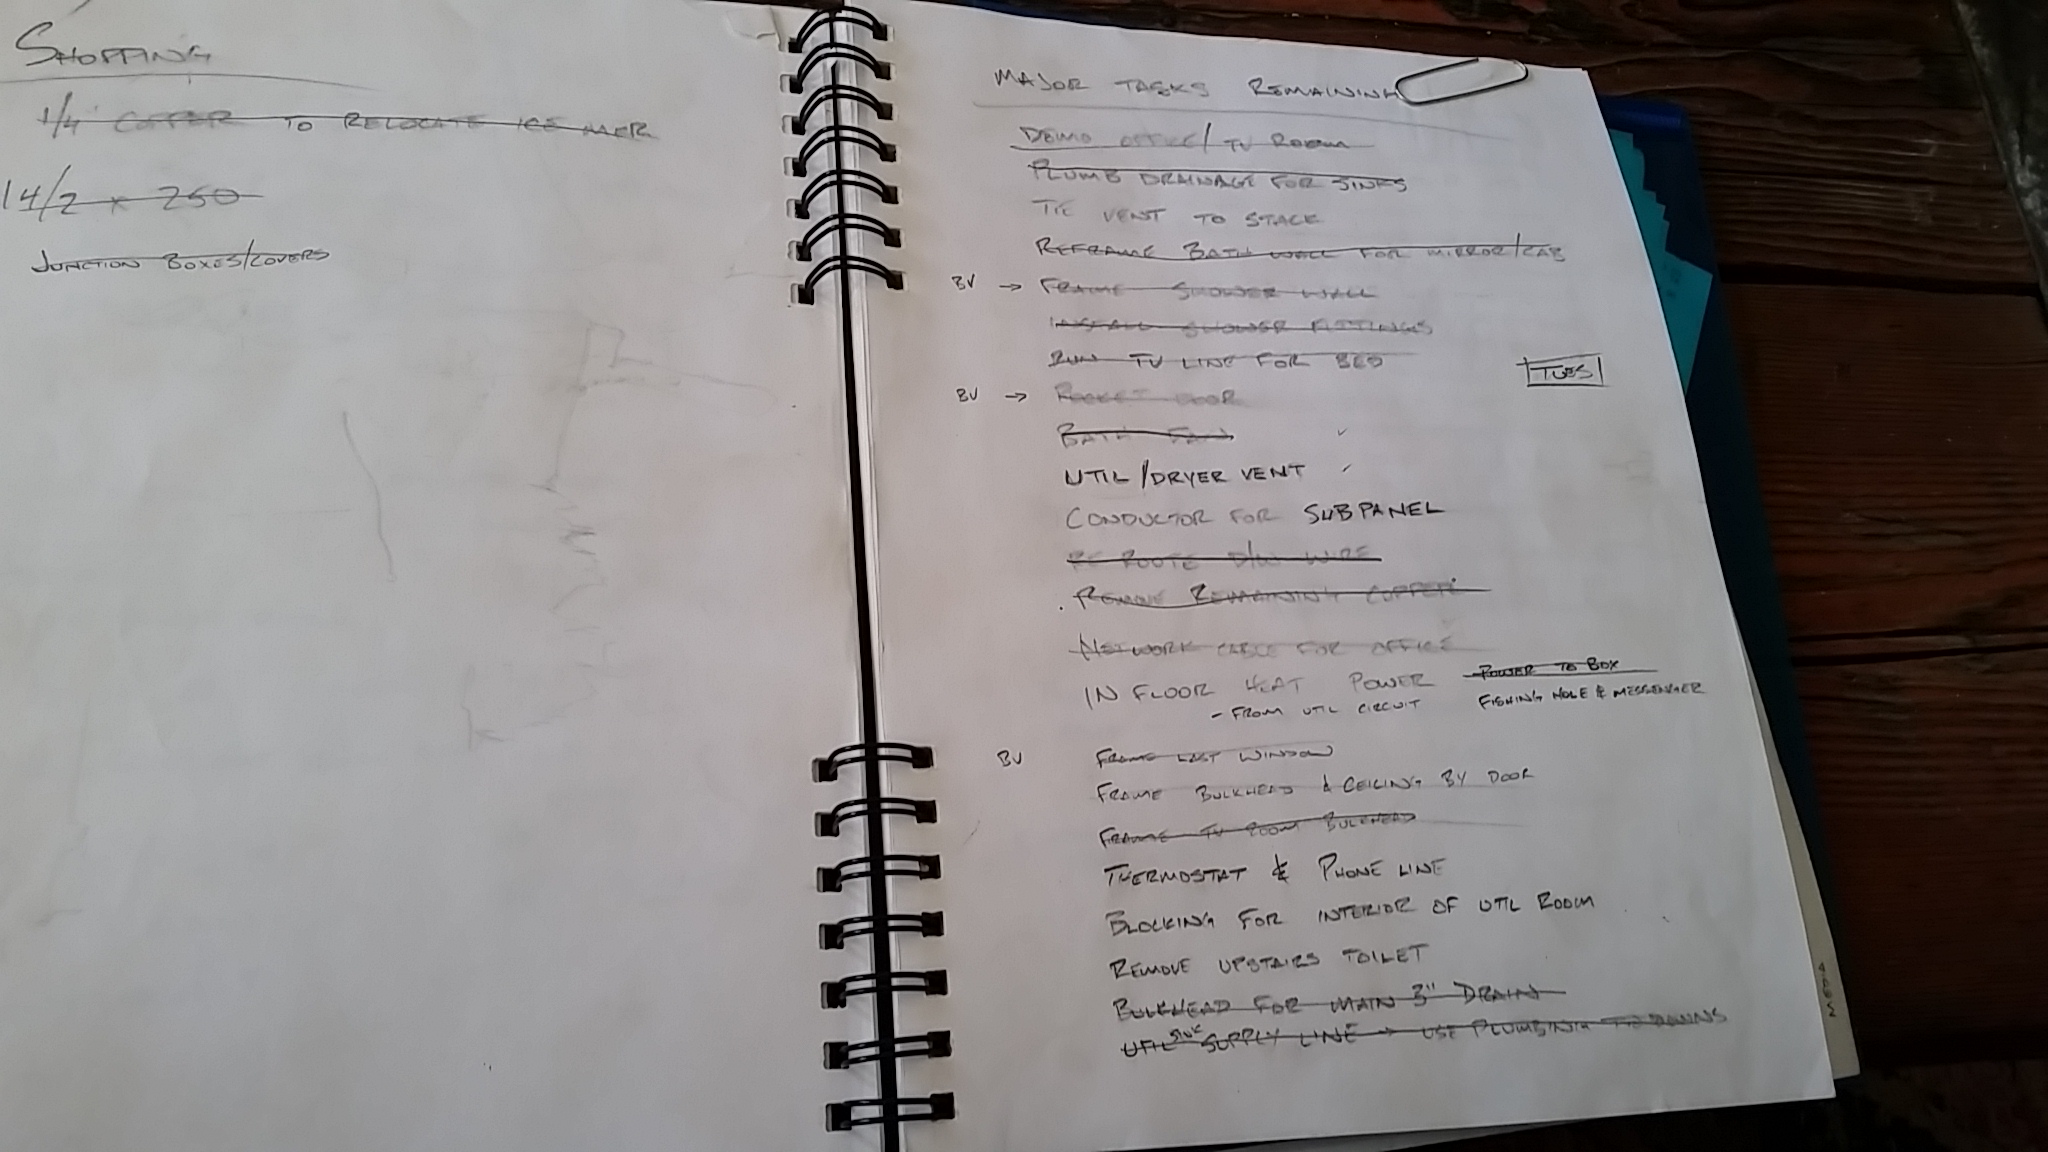 SHOPPING
1/4 COPPER TO RELOCATE ICE MKR
14/2 x 250
JUNCTION BOXES/COVERS
MAJOR TASKS REMAINING
DEMO OFFICE/TV ROOM
PLUMB DRAINAGE FOR SINKS
TIE VENT TO STACK
REFRAME BATH WALL FOR MIRROR/CAB
BV → FRAME SHOWER WALL
INSTALL SHOWER FITTINGS
RUN TV LINE FOR BED
TUES
BV → POCKET DOOR
BATH FAN ✓
UTIL/DRYER VENT ✓
CONDUCTOR FOR SUBPANEL
RE ROUTE D/W WIRE
REMOVE REMAINING COPPER
NETWORK CABLE FOR OFFICE
IN FLOOR HEAT POWER POWER TO BOX
- FROM UTIL CIRCUIT FISHING HOLE & MESSENGER
BV FRAME LAST WINDOW
FRAME BULKHEAD & CEILING BY DOOR
FRAME TV ROOM BULKHEAD
THERMOSTAT & PHONE LINE
BLOCKING FOR INTERIOR OF UTIL ROOM
REMOVE UPSTAIRS TOILET
BULKHEAD FOR MAIN 3" DRAIN
UTIL SINK SUPPLY LINE → USE PLUMBING